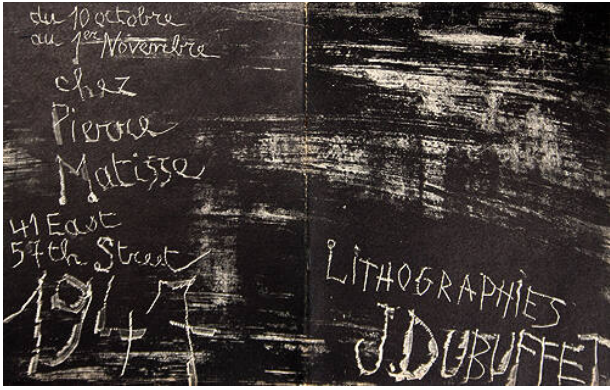 du 10 octobre
au 1er Novembre
chez
Pierre
Matisse
41 East
57th Street
1947
LiTHOGRAPHiES
J. DUBUFFET